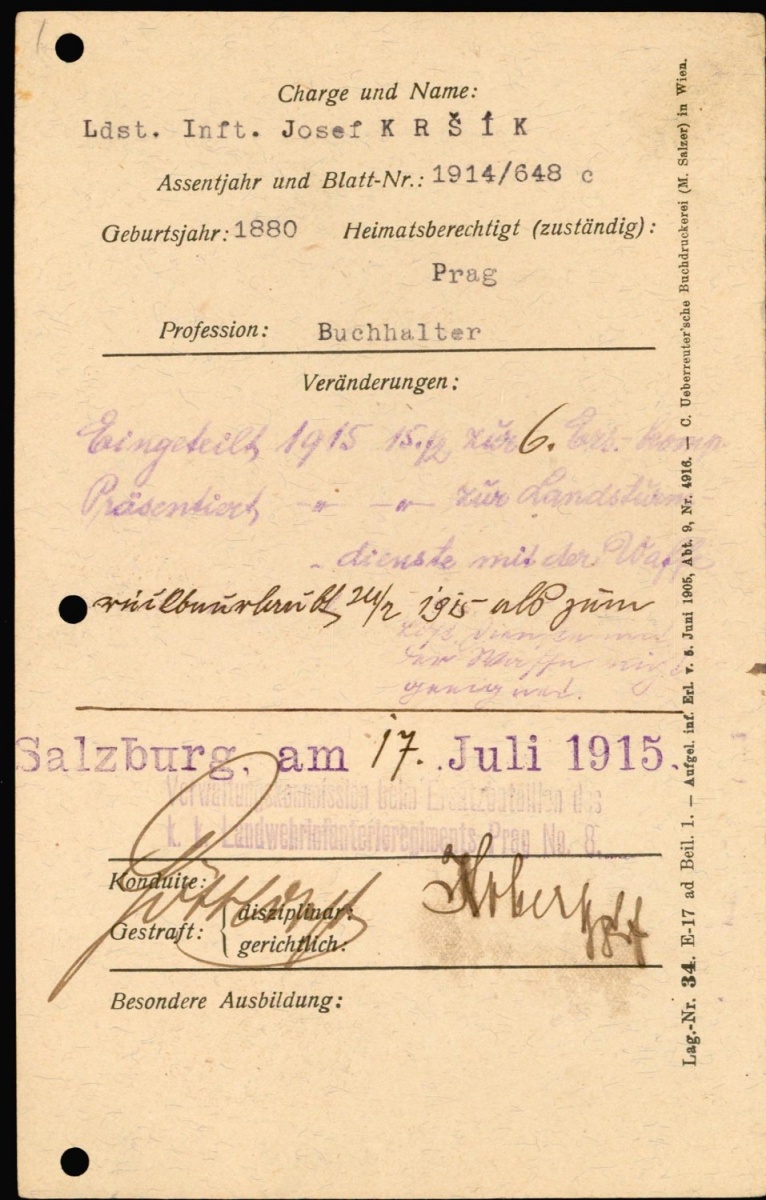 Charge und Name:
Ldst. Inft. Josef K R Š Í K
Assentjahr und Blatt-Nr.: 1914/648 c
Geburtsjahr: 1880 Heimatsberechtigt (zuständig):
Prag
Profession: Buchhalter
Veränderungen:
Eingeteilt 1915 15./2 zur 6. Ers.-Komp.
Präsentiert -"- -"- zur Landsturm-
dienste mit der Waffe
24/2 1915 als zum
Ldst. Dienste mit
der Waffe nicht
geeignet.
Salzburg, am 17. Juli 1915.
Verwaltungskommission beim Ersatzbataillon des
k. k. Landwehrinfanterieregiments Prag No. 8.
Konduite:
Gestraft: { disziplinar:
gerichtlich:
Besondere Ausbildung:
Lag.-Nr. 34. E-17 ad Beil. 1. — Aufgel. inf. Erl. v. 5. Juni 1905, Abt. 9, Nr. 4916. — C. Ueberreuter'sche Buchdruckerei (M. Salzer) in Wien.